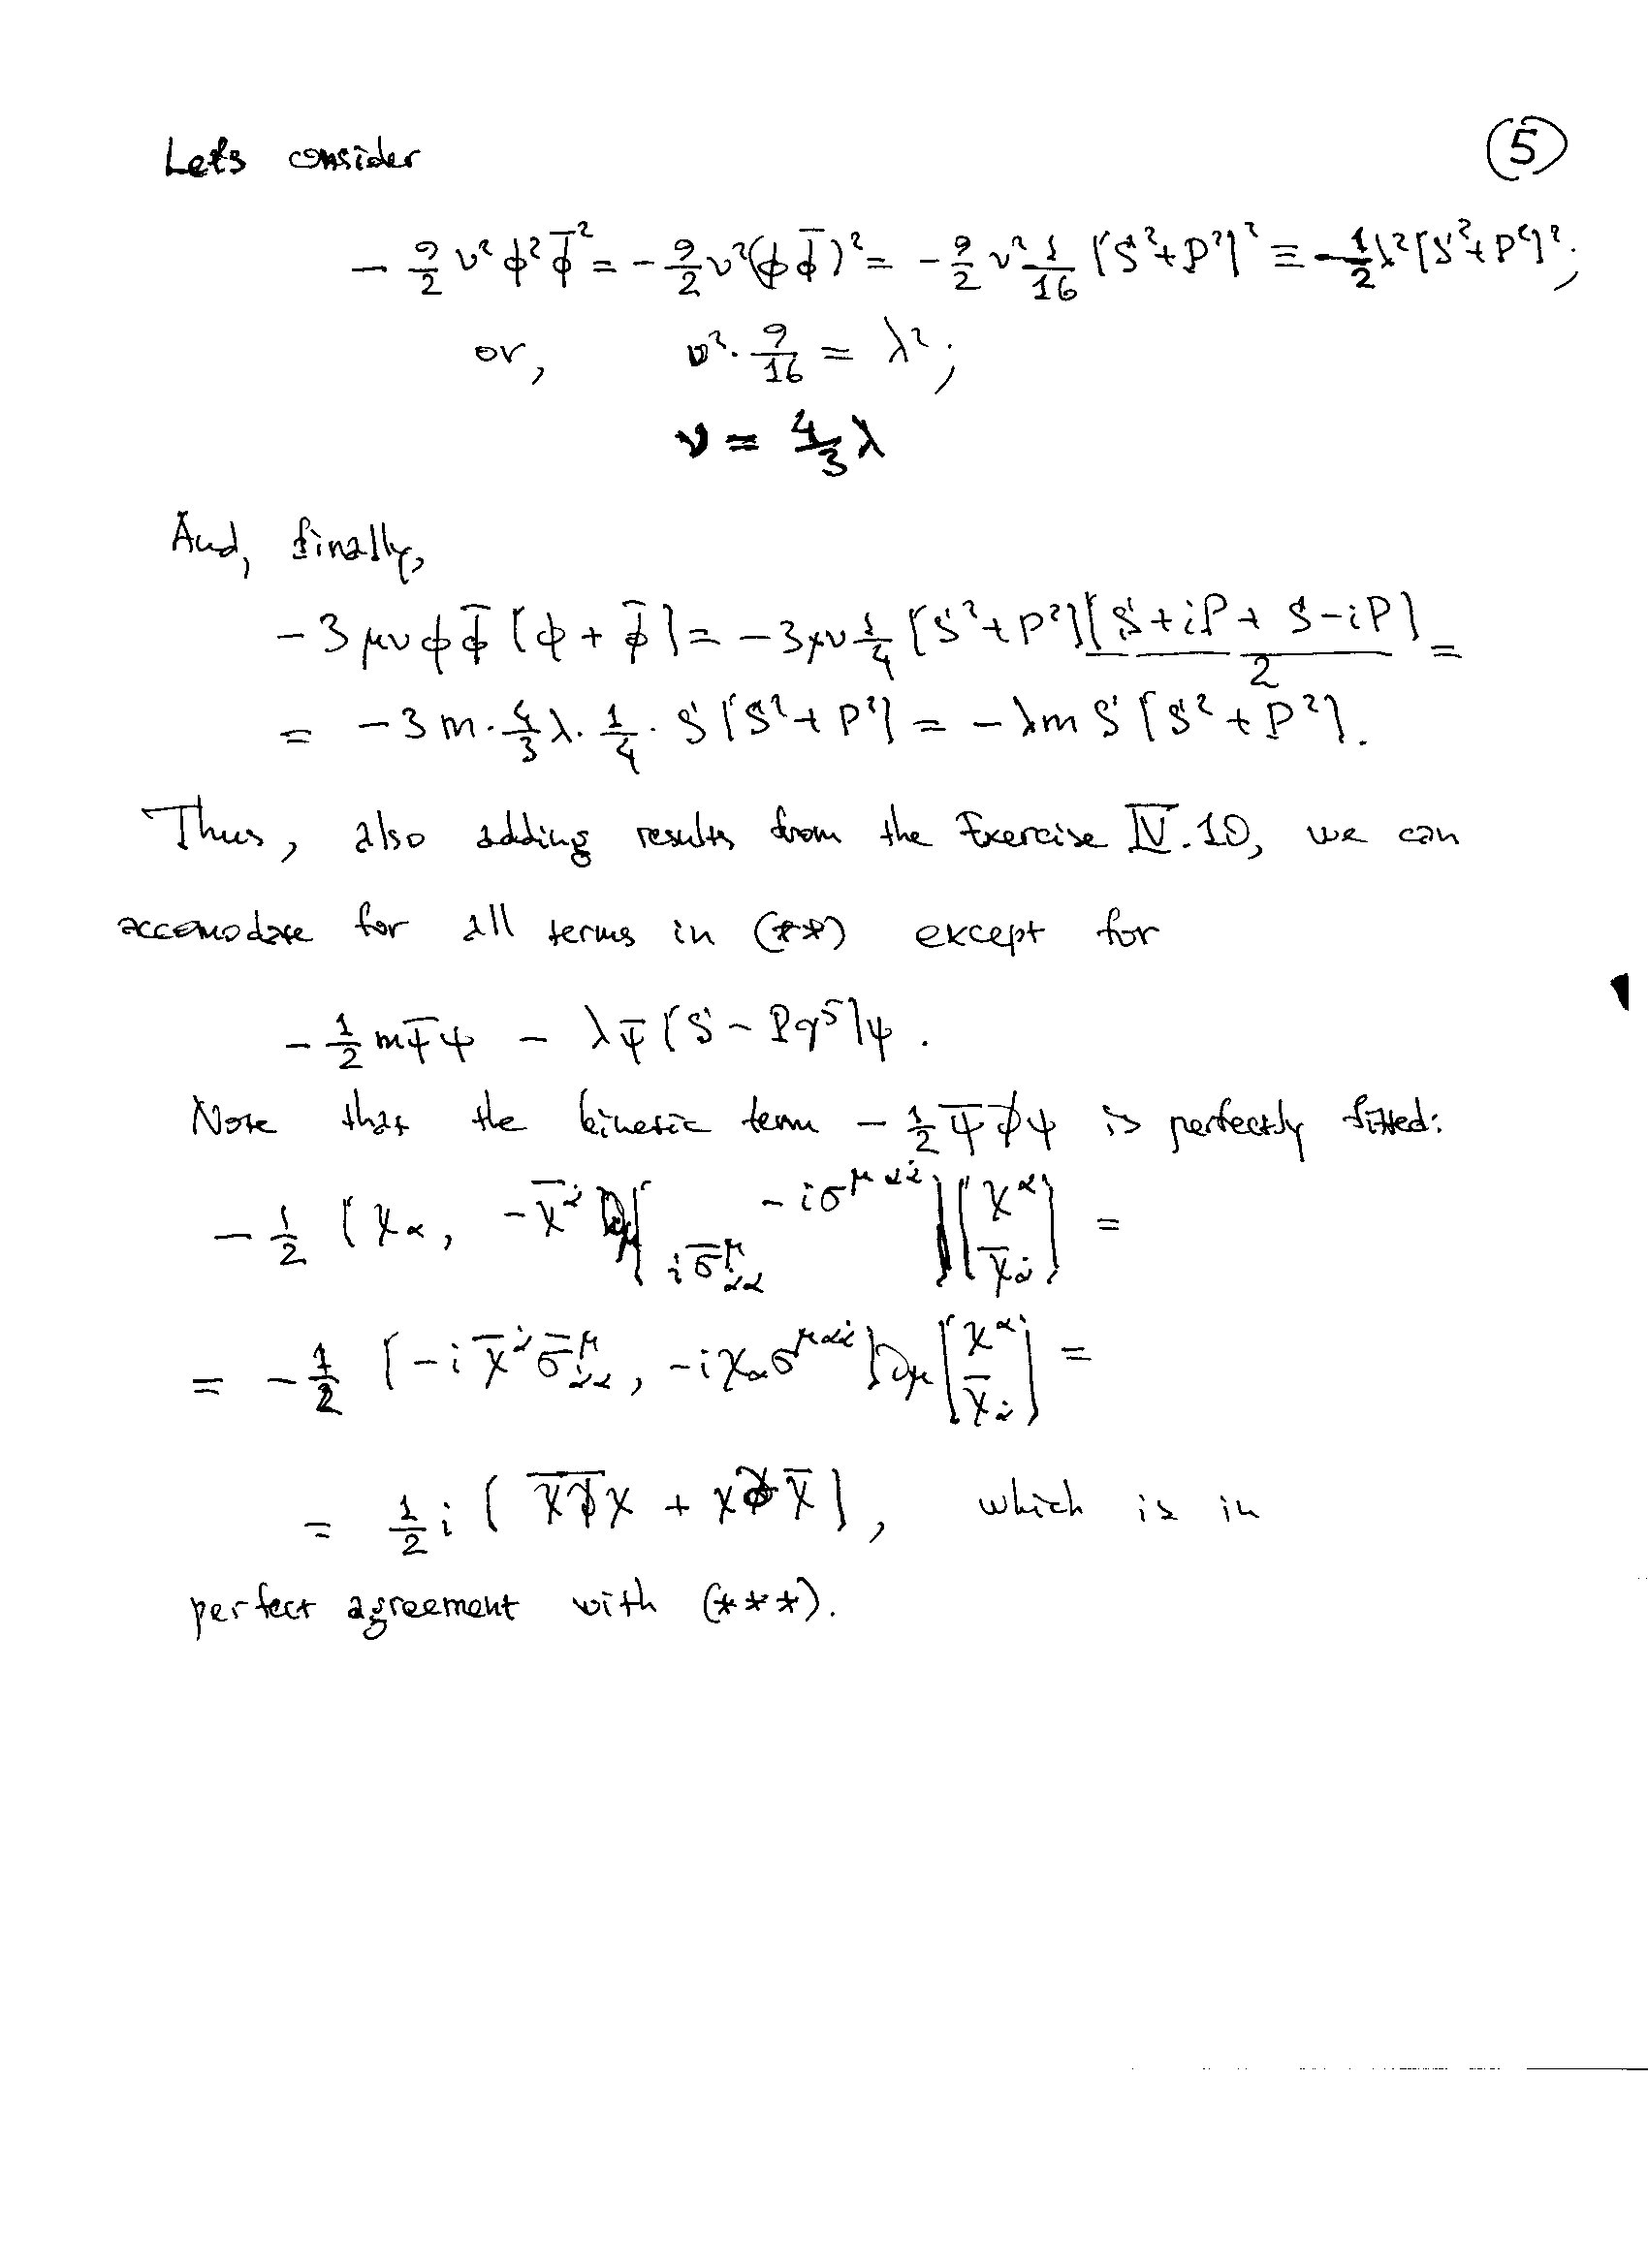 Lets consider
(5)
- 9/2 ν² φ² φ̄² = - 9/2 ν² (φ φ̄)² = - 9/2 ν² 1/16 [S² + P²]² ≡ - 1/2 λ² [S² + P²]²;
or, ν² · 9/16 = λ²;
ν = 4/3 λ
And, finally,
- 3 μν φ φ̄ [φ + φ̄] = - 3μν 1/4 [S² + P²] [S + iP + S - iP]/2 =
= - 3m · 4/3 λ · 1/4 · S [S² + P²] = - λm S [S² + P²].
Thus, also adding results from the Exercise IV.10, we can
accomodate for all terms in (**) except for
- 1/2 m ψ̄ ψ - λ ψ̄ [S - Pγ⁵] ψ.
Note that the kinetic term - 1/2 ψ̄ ∂̸ ψ is perfectly fitted:
- 1/2 (χ_α, - χ̄^α̇) ∂_μ [ - iσ^{μ αα̇} ; i σ̄^μ_{α̇α} ] [ χ^α ; χ̄_α̇ ] =
= - 1/2 [ - i χ̄^α̇ σ̄^μ_{α̇α}, - i χ_α σ^{μαα̇} ] ∂_μ [ χ^α ; χ̄_α̇ ] =
= 1/2 i [ χ̄ ∂̸̄ χ + χ ∂̸ χ̄ ], which is in
perfect agreement with (***).